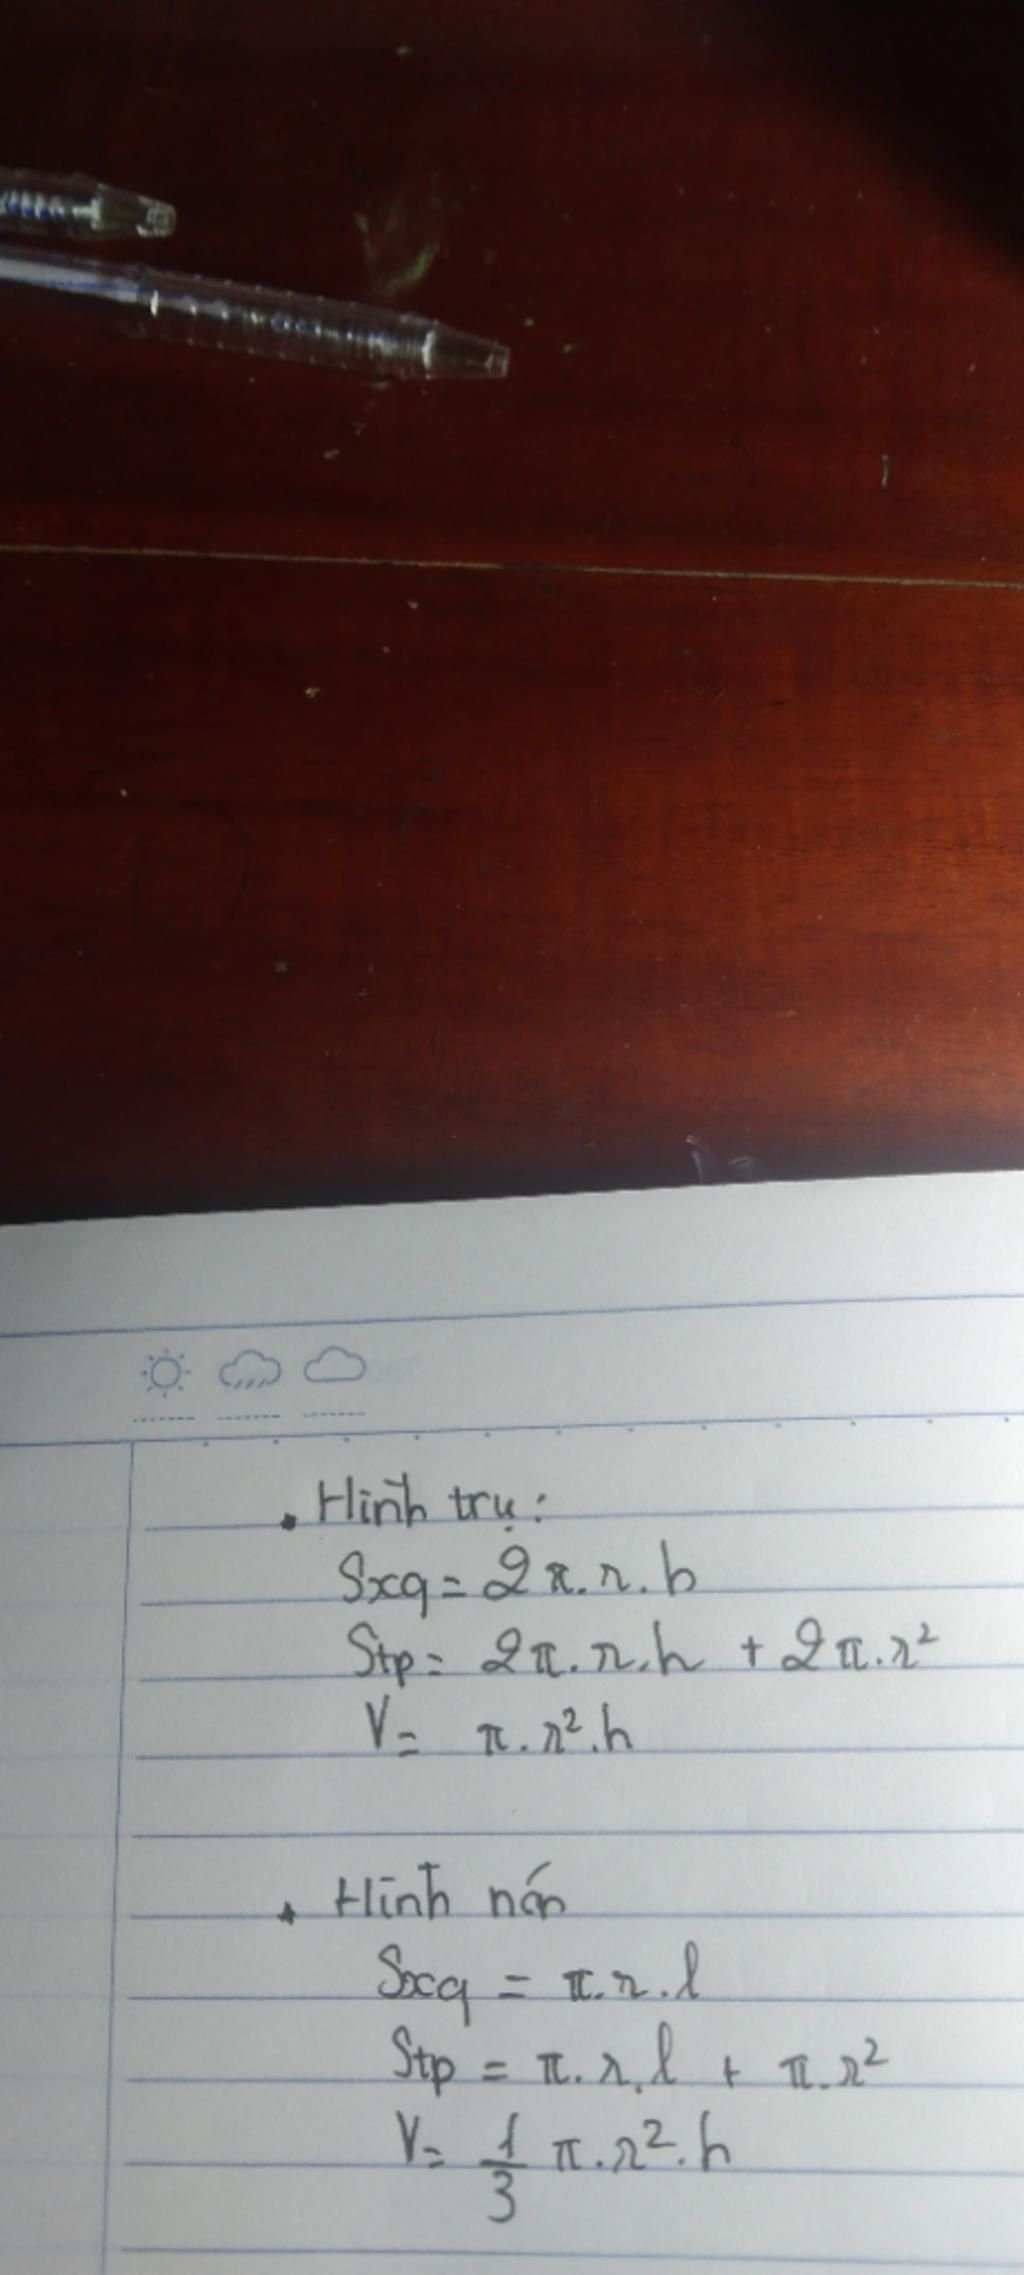 . Hình trụ:
Sxq = 2π.r.h
Stp = 2π.r.h + 2π.r²
V = π.r².h
. Hình nón
Sxq = π.r.l
Stp = π.r.l + π.r²
V = 1/3 π.r².h